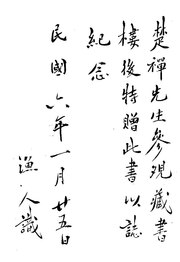 楚禪先生參观藏書
樓後特贈此書以誌
紀念
民國六年一月廿五日
漁人識